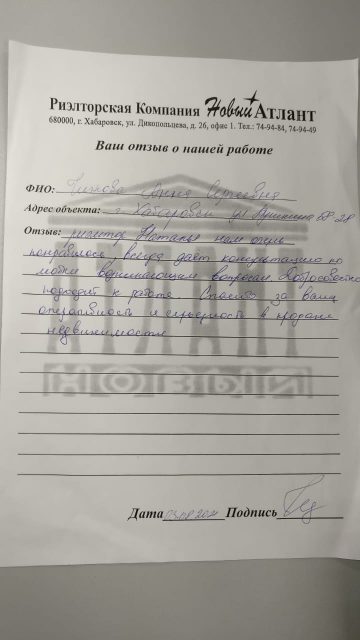 Риэлторская Компания Новый Атлант
680000, г. Хабаровск, ул. Дикопольцева, д. 26, офис 1. Тел.: 74-94-84, 74-94-49
Ваш отзыв о нашей работе
ФИО: Анна Сергеевна
Адрес объекта: г. Хабаровск ул Пушкина 28
Отзыв: риэлтор Наталья нам очень
понравилась, всегда даёт консультацию по
любым возникающим вопросам. Добросовестно
подходит к работе. Спасибо за вашу
оперативность и серьезность в продаже
недвижимости
НОВЫЙ
АТЛАНТ
Дата Подпись